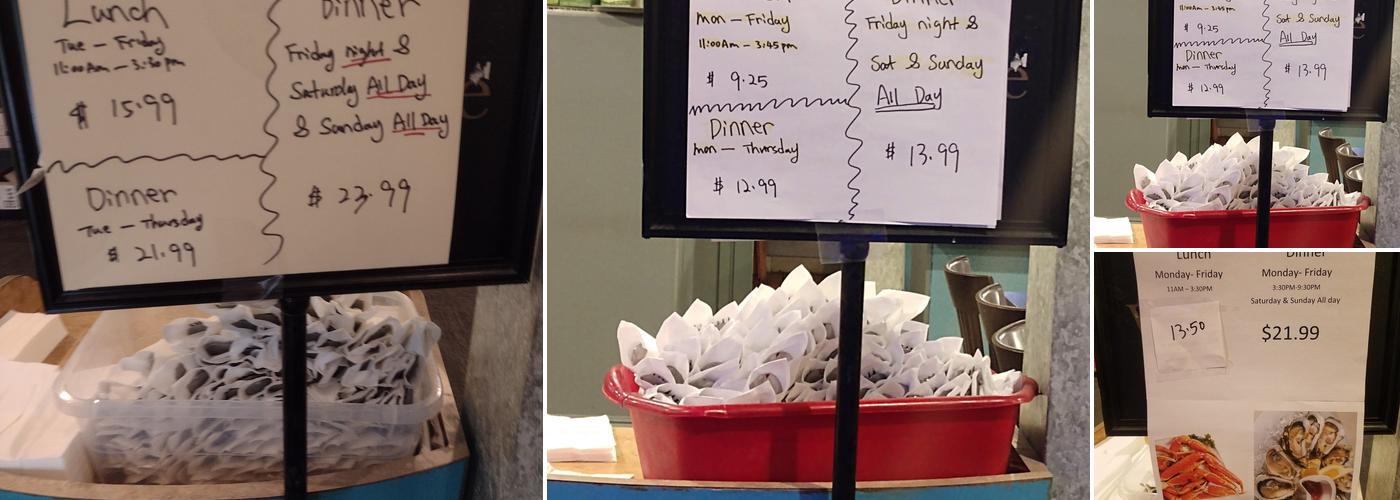 Lunch
Tue — Friday
11:00Am — 3:30pm
$ 15.99
Dinner
Tue — Thursday
$ 21.99
Dinner
Friday night &
Saturday All Day
& Sunday All Day
$ 23.99
Mon — Friday
11:00Am — 3:45pm
$ 9.25
Dinner
Mon — Thursday
$ 12.99
Dinner
Friday night &
Sat & Sunday
All Day
$ 13.99
11:00Am — 3:45pm
$ 9.25
Dinner
Mon — Thursday
$ 12.99
Sat & Sunday
All Day
$ 13.99
Lunch
Monday- Friday
11AM – 3:30PM
13.50
Dinner
Monday- Friday
3:30PM-9:30PM
Saturday & Sunday All day
$21.99